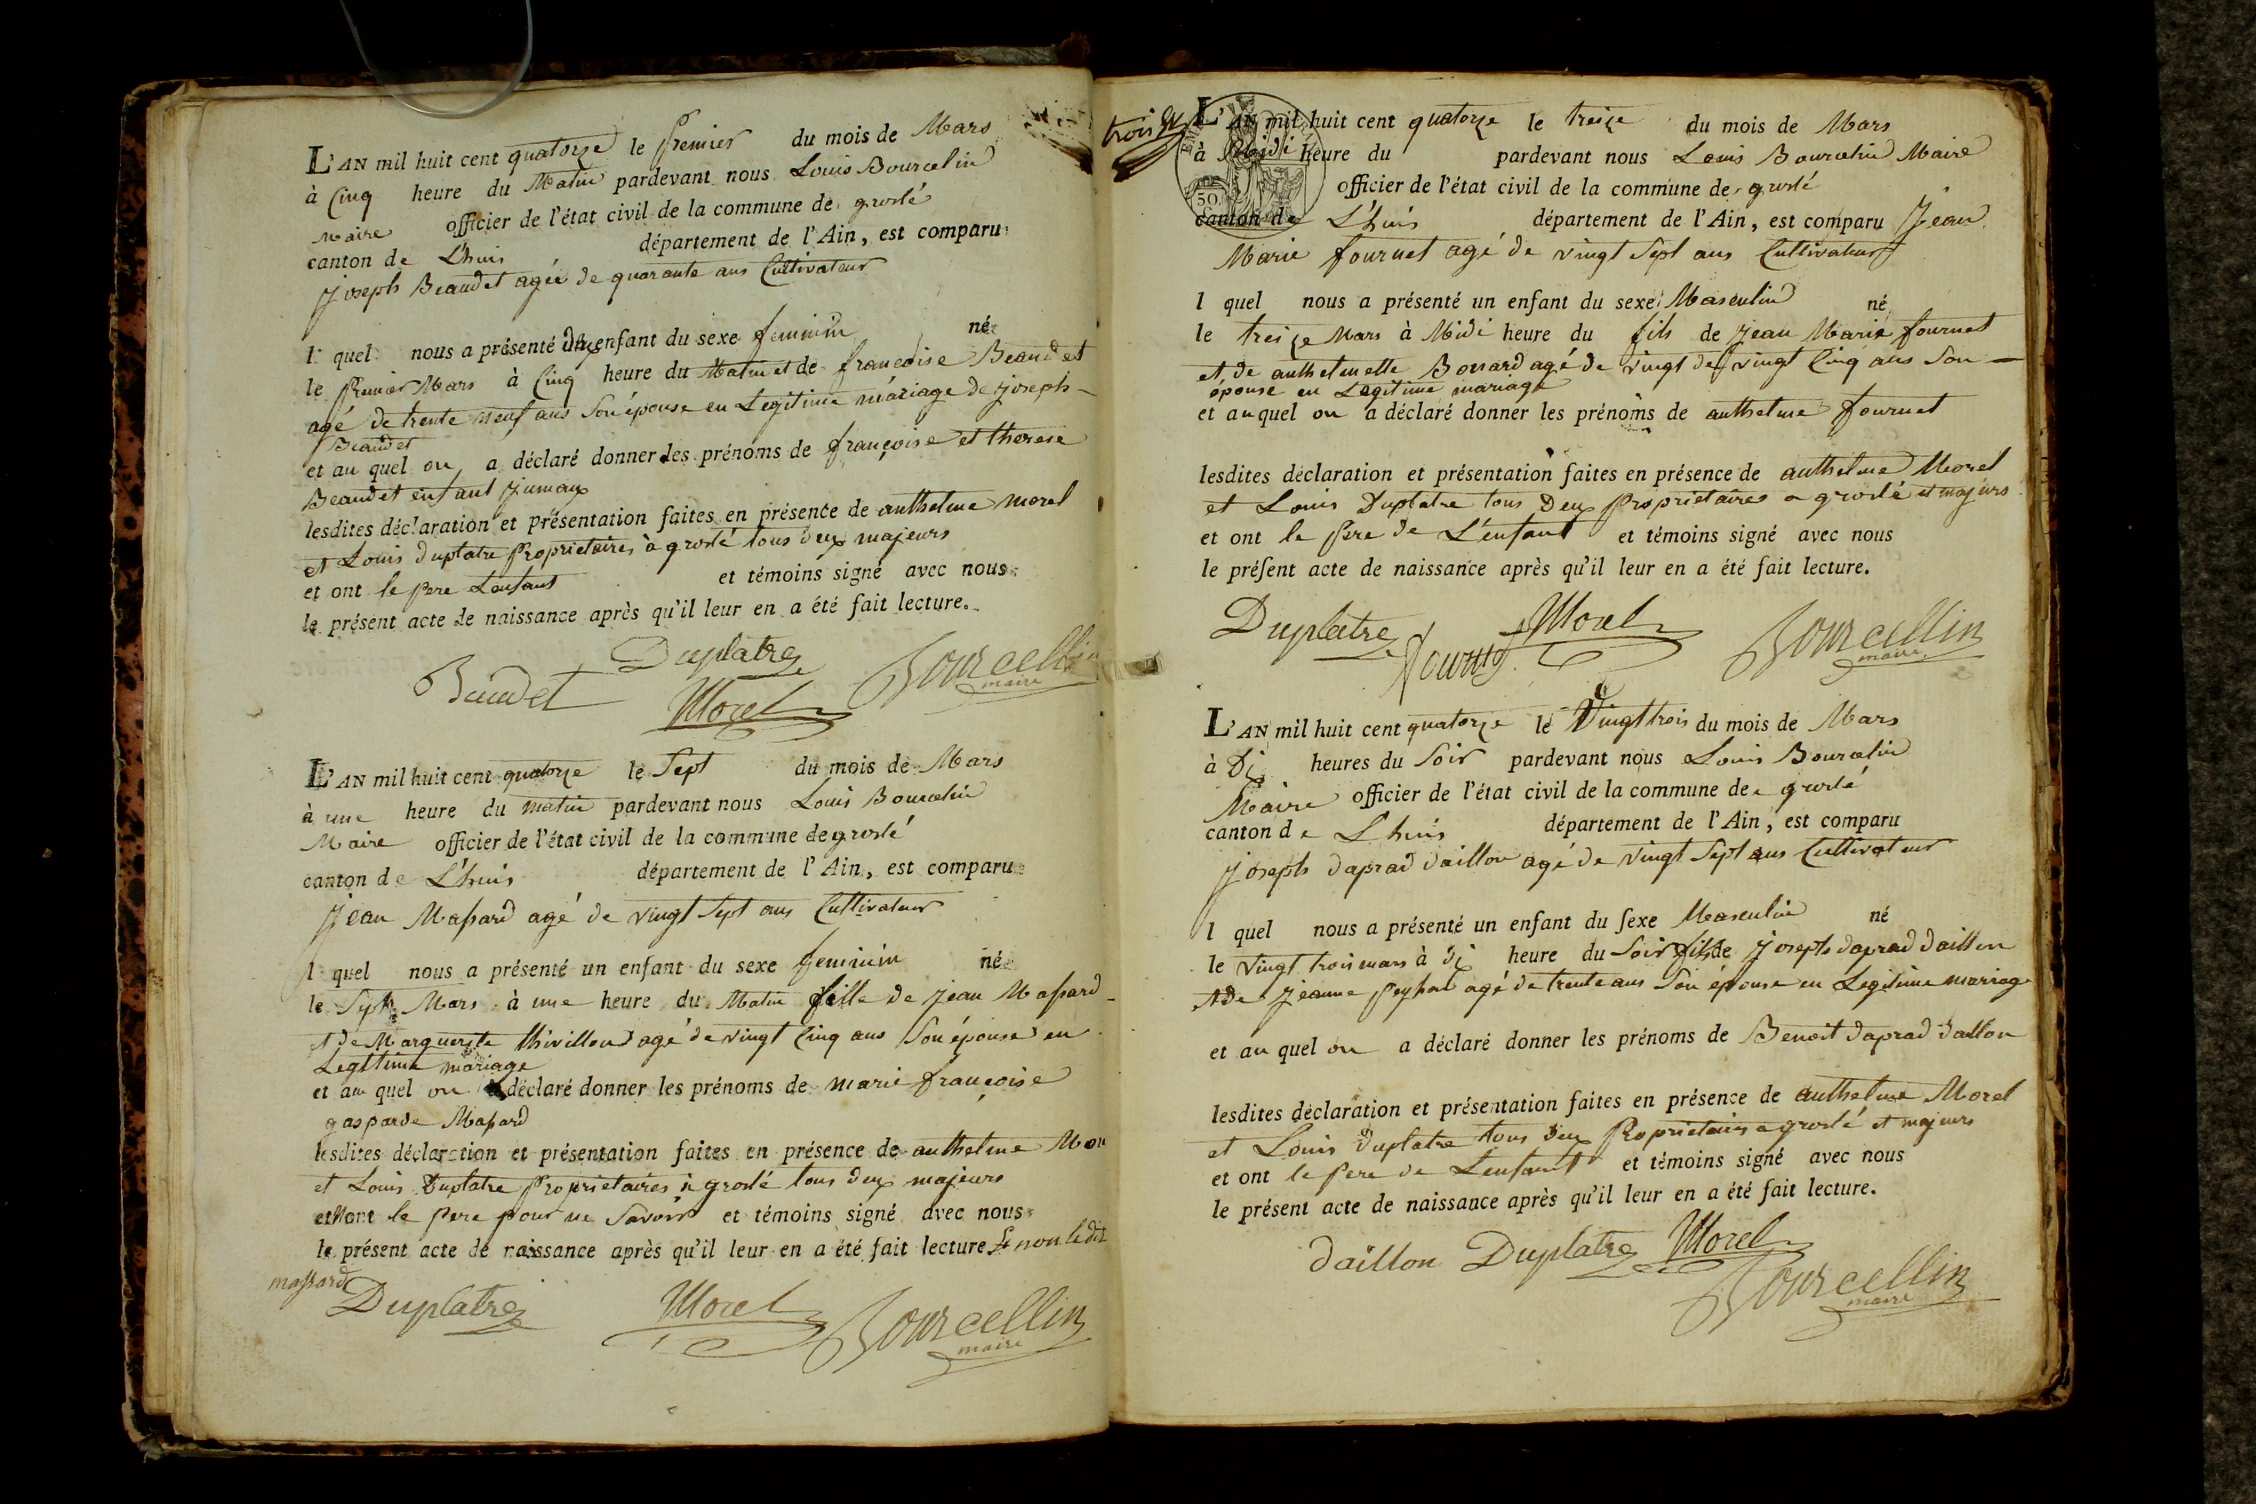 L'AN mil huit cent quatorze le Premier du mois de Mars
à Cinq heure du Matin pardevant nous Louis Bourcelin
Maire officier de l'état civil de la commune de groslé
canton de L'huis département de l'Ain, est comparu
Joseph Beaudet agée de quarante ans Cultivateur
l quel nous a présenté enfant du sexe feminin né
le Premier Mars à Cinq heure du Matin et de francoise Beaudet
agé de trente neuf ans Son épouse en Legitime máriage de joseph
Beaudet
et au quel on a déclaré donner les prénoms de françoise et therese
Beaudet enfant Jumaux
lesdites déclaration et présentation faites en présence de anthelme morel
et Louis duplatre Proprietaires à groslé tous deux majeurs
et ont le pere Lenfant et témoins signé avec nous
le présent acte de naissance après qu'il leur en a été fait lecture.
Duplatre
Baudet Morel Bourcellin
maire
L'AN mil huit cent quatorze le Sept du mois de Mars
à une heure du matin pardevant nous Louis Bourcelin
Maire officier de l'état civil de la commune de groslé
canton de L'huis département de l'Ain, est comparu
Jean Massard agé de vingt Sept ans Cultivateur
l quel nous a présenté un enfant du sexe feminin né
le Sept Mars à une heure du Matin fille de Jean Massard
et de Marguerite thivillon agé de vingt Cinq ans Son épouse en
Legitime mariage
et au quel on a déclaré donner les prénoms de marie françoise
gasparde Massard
lesdites déclaration et présentation faites en présence de anthelme
et Louis Duplatre Proprietaires à groslé tous deux majeurs
et ont le pere pour ne Savoir et témoins signé avec nous
le présent acte de naissance après qu'il leur en a été fait lecture et non ledit
massard
Duplatre Morel Bourcellin
maire
trois
L'AN mil huit cent quatorze le treize du mois de Mars
à Midi heure du pardevant nous Louis Bourcelin Maire
officier de l'état civil de la commune de groslé
50
canton de L'huis département de l'Ain, est comparu Jean
Marie fournet agé de vingt Sept ans Cultivateur
l quel nous a présenté un enfant du sexe Masculin né
le treize Mars à Midi heure du fils de Jean Marie fournet
et de anthelmette Bossard agé de vingt de vingt Cinq ans Son
épouse en Legitime mariage
et au quel on a déclaré donner les prénoms de anthelme fournet
lesdites déclaration et présentation faites en présence de anthelme Morel
et Louis Duplatre tous Deux Proprietaires a groslé et majeurs
et ont le Pere de L'enfant et témoins signé avec nous
le préſent acte de naissance après qu'il leur en a été fait lecture.
Duplatre Morel
fournet Bourcellin
maire
L'AN mil huit cent quatorze le Vingt trois du mois de Mars
à Dix heures du Soir pardevant nous Louis Bourcelin
Maire officier de l'état civil de la commune de groslé
canton de L'huis département de l'Ain, est comparu
Joseph daprad daillon agé de vingt Sept ans Cultivateur
l quel nous a présenté un enfant du ſexe Masculin né
le vingt trois mars à dix heure du Soir fils de Joseph daprad daillon
et de Jeanne agé de trente ans Son épouse en Legitime mariage
et au quel on a déclaré donner les prénoms de Benoit daprad dallon
lesdites déclaration et présentation faites en présence de anthelme Morel
et Louis duplatre tous deux Proprietaires a groslé et majeurs
et ont le Pere de L'enfant et témoins signé avec nous
le présent acte de naissance après qu'il leur en a été fait lecture.
daïllon Duplatre Morel
Bourcellin
maire